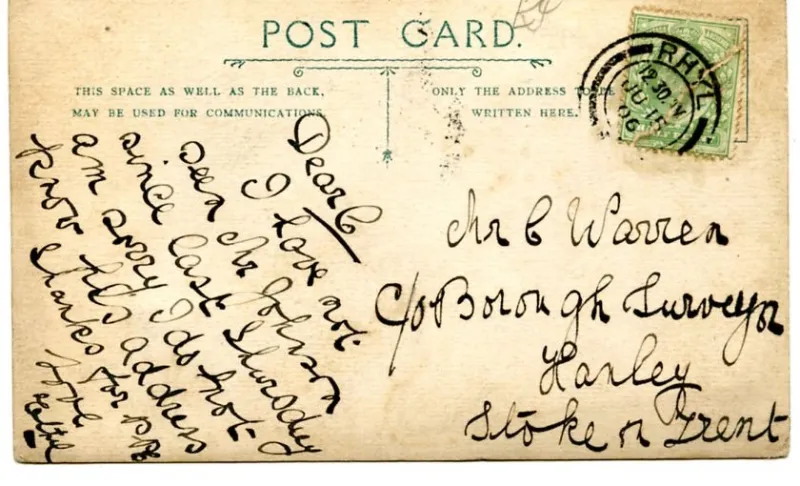 POST CARD.
THIS SPACE AS WELL AS THE BACK,
MAY BE USED FOR COMMUNICATIONS.
ONLY THE ADDRESS TO BE
WRITTEN HERE.
RHYL
12.30
JU 15
06
Dear C
I have not
seen Mr Johnson
since last Thursday
am sorry I do not
know his address
Thanks for PPC
love
Mr C Warren
c/o Borough Surveyor
Hanley
Stoke on Trent